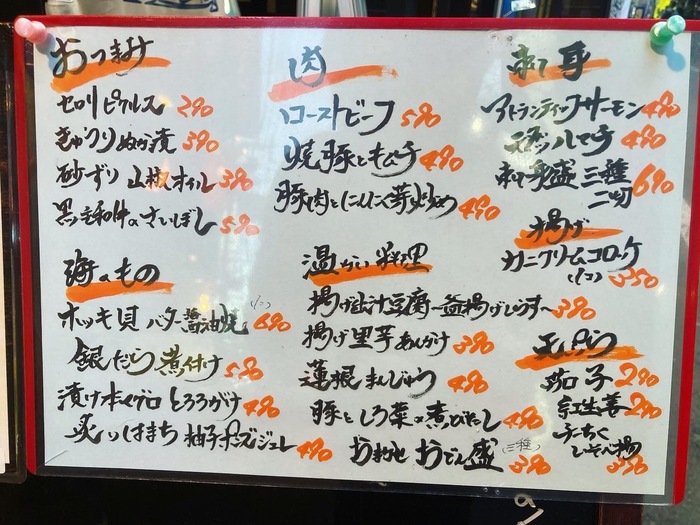 おつまみ
セロリピクルス 290
きゅうりぬか漬 390
砂ずり山椒オイル 390
黒毛和牛のさいぼし 590
海のもの
ホッキ貝バター醤油焼 (1コ) 690
銀だら煮付け 590
漬け本マグロとろろがけ 490
炙りはまち柚子ポン酢ジュレ 490
肉
ローストビーフ 590
焼豚とキムチ 490
豚肉とにんにく芽炒め 490
温かい料理
揚げ出汁豆腐〜釜揚げしらす〜 390
揚げ里芋あんかけ 390
蓮根まんじゅう 490
豚としろ菜の煮びたし 490
おまかせおでん盛 (三種) 390
刺身
アトランティックサーモン 490
活〆ハマチ 490
刺身盛三種二切 690
揚げ
カニクリームコロッケ
(1コ) 350
天ぷら
茄子 290
紅生姜 290
ちーちく
しそ巻揚 390